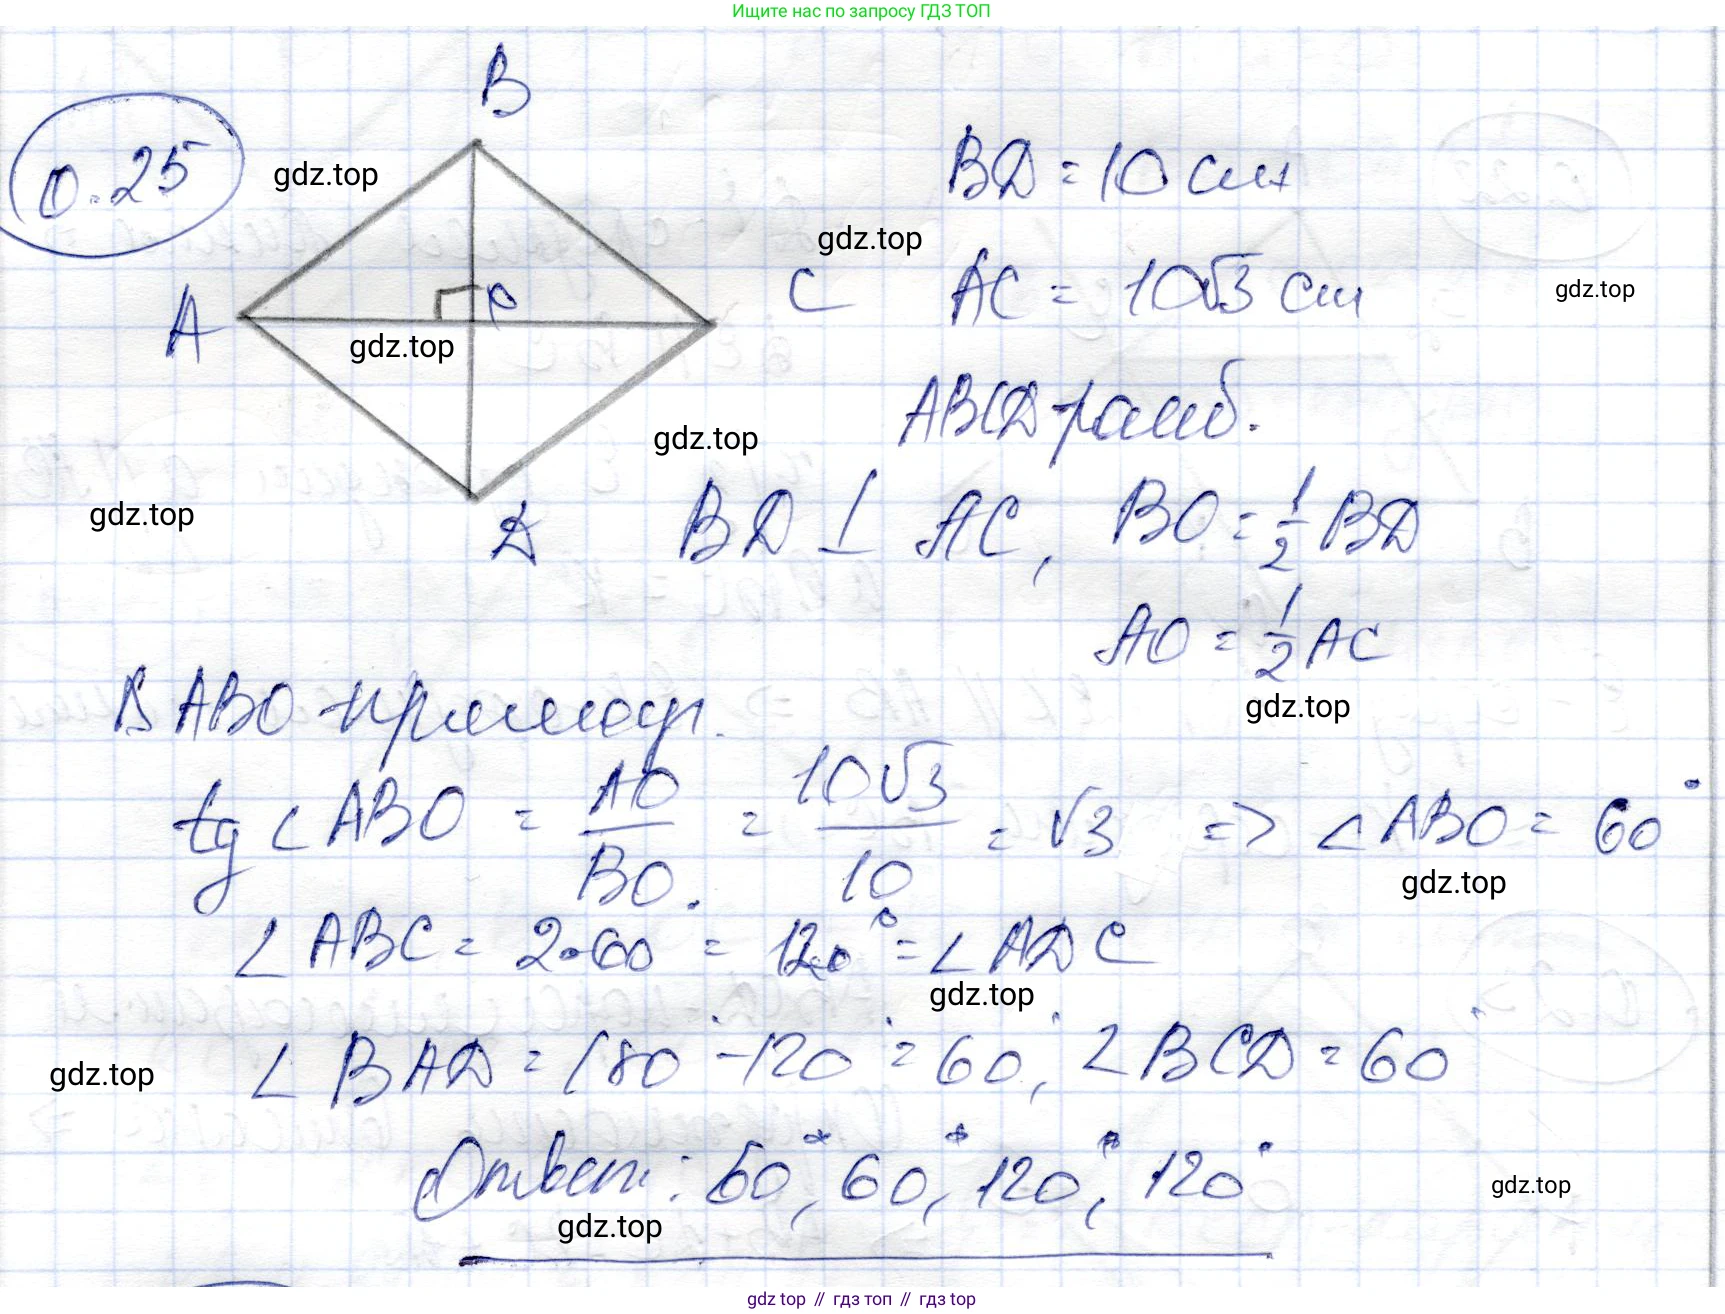 Ищите нас по запросу ГДЗ ТОП
0.25
B
gdz.top
BD = 10 см
gdz.top
A
O
C
AC = 10√3 см
gdz.top
gdz.top
ABCD - ромб.
gdz.top
gdz.top
D
BD ⊥ AC, BO = 1/2 BD
AO = 1/2 AC
gdz.top
Δ ABO - прямоуг.
tg ∠ ABO = AO/BO = 10√3/10 = √3 => ∠ ABO = 60°
gdz.top
∠ ABC = 2·60 = 120° = ∠ ADC
gdz.top
gdz.top
∠ BAD = 180° - 120° = 60°, ∠ BCD = 60°
Ответ: 60°, 60°, 120°, 120°
gdz.top
gdz.top
gdz top // гдз топ // гдз top